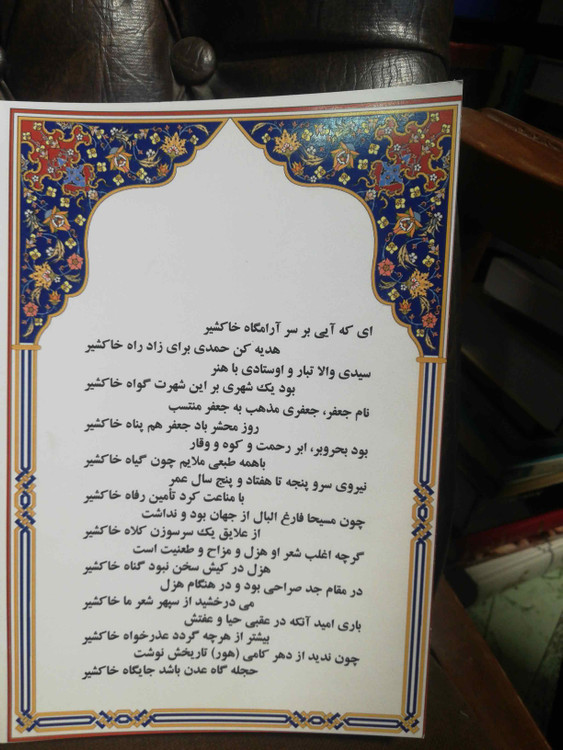 ای که آیی بر سر آرامگاه خاکشیر
هدیه کن حمدی برای زاد راه خاکشیر
سیدی والا تبار و اوستادی با هنر
بود یک شهری بر این شهرت گواه خاکشیر
نام جعفر، جعفری مذهب به جعفر منتسب
روز محشر باد جعفر هم پناه خاکشیر
بود بحروبر، ابر رحمت و کوه و وقار
باهمه طبعی ملایم چون گیاه خاکشیر
نیروی سرو پنجه تا هفتاد و پنج سال عمر
با مناعت کرد تأمین رفاه خاکشیر
چون مسیحا فارغ البال از جهان بود و نداشت
از علایق یک سرسوزن کلاه خاکشیر
گرچه اغلب شعر او هزل و مزاح و طعنیت است
هزل در کیش سخن نبود گناه خاکشیر
در مقام جد صراحی بود و در هنگام هزل
می درخشید از سپهر شعر ما خاکشیر
باری امید آنکه در عقبی حیا و عفتش
بیشتر از هرچه گردد عذرخواه خاکشیر
چون ندید از دهر کامی (هور) تاریخش نوشت
حجله گاه عدن باشد جایگاه خاکشیر